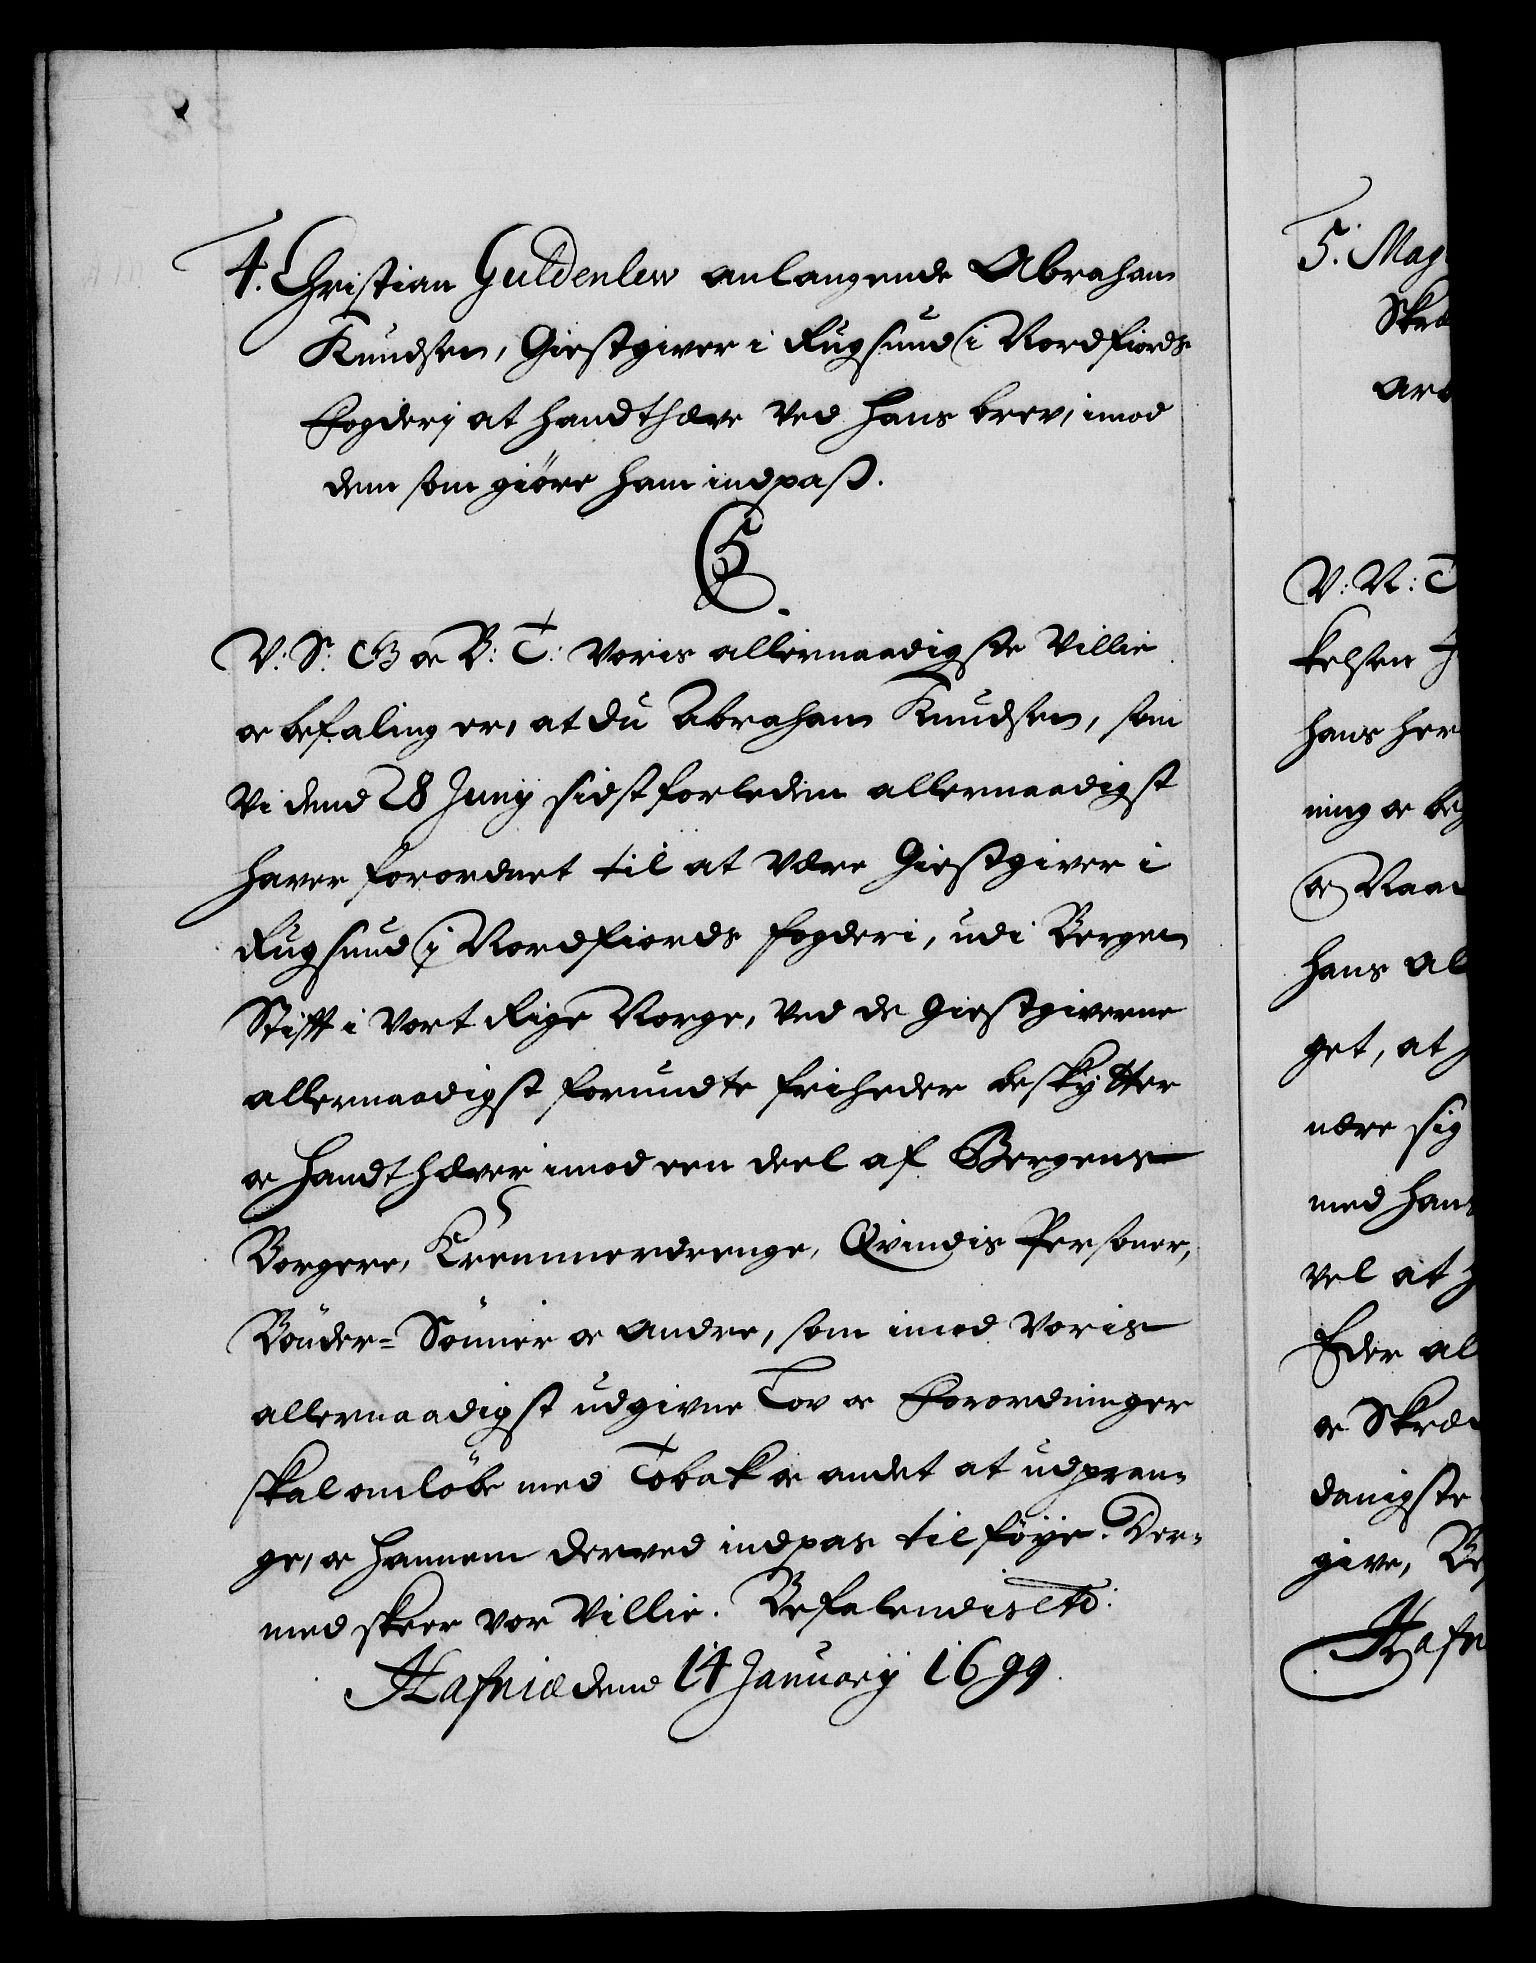 4. Christian Guldenlew anlangende Abraham
Knudsen, Giestgiver i Rugsund i Nordfiords
Fogderj at handthæve ved hans brev, imod
dem som giöre ham indpaß.
C5
V: S: G og B: T: Voris allernaadigste Villie
og befaling er, at du Abraham Knudsen, som
Vi dend 28 Junij sidstforleden allernaadigst
haver forordnet til at være Giestgiver i
Rugsund i Nordfiords fogderi, udi Bergen
Stift i Vort Rige Norge, ved de Giestgiverne
allernaadigst forundte friheder beskytter
og handthæver imod een deel af Bergens
Borgere, Kremmerdrenge, Qvindis Personer,
Bönder-Sönner og andre, som imod Voris
allernaadigst udgivne Lov og Forordninger
skal omlöbe med Tobak og andet at udpran-
ge, og hannem derved indpas tilföye. Der-
med skeer vor Villie. Befalendis etc:
Hafniæ dend 14 Januarij 1699.
5. Mag
Skræ
are
V: N: T
kelsen
hans her
ning og beg
og Naad
hans al
get, at
nære sig
med hans
vel at
Eder al
og Skræ
danigste
give, Be
Hafn